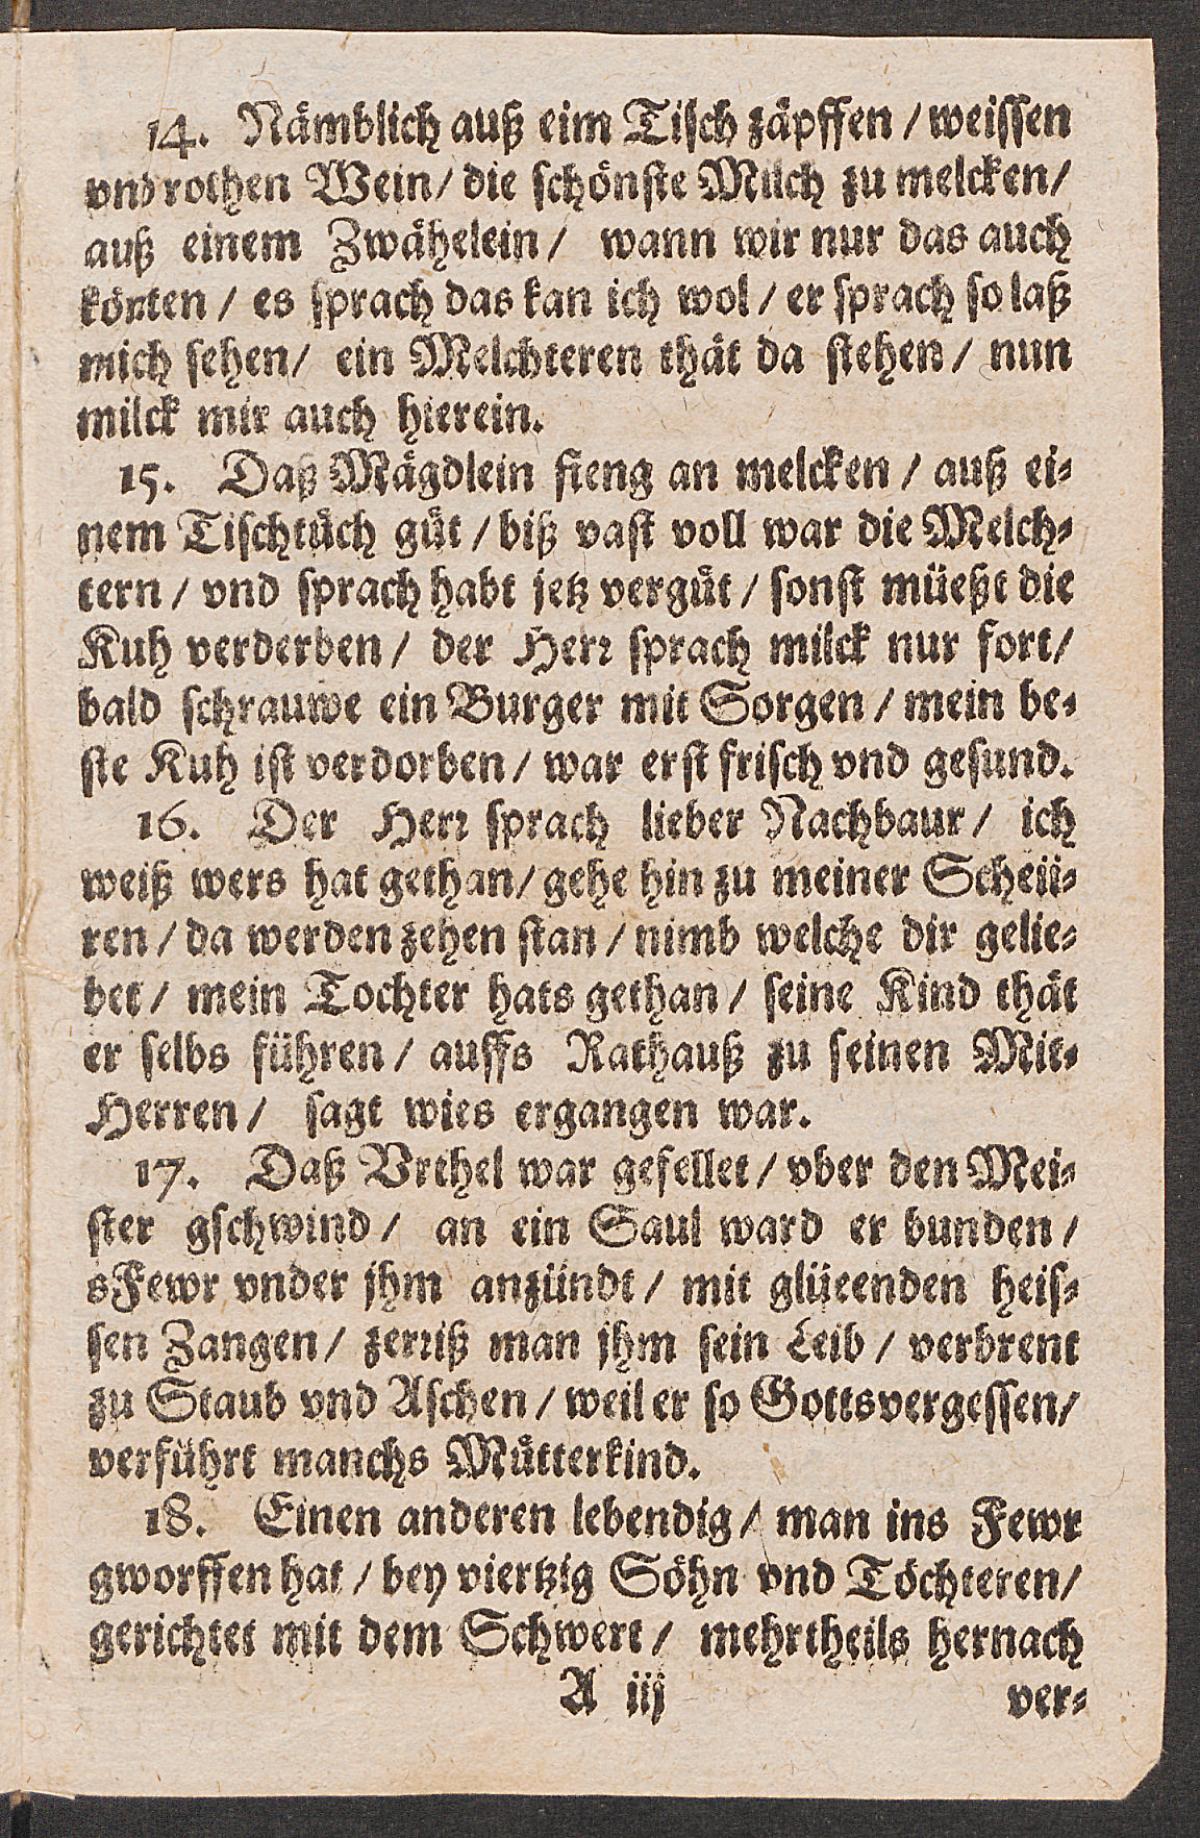 14. Nämblich auß eim Tisch zäpffen / weissen
vnd rothen Wein / die schönste Milch zu melcken /
auß einem Zwähelein / wann wir nur das auch
könten / es sprach das kan ich wol / er sprach so laß
mich sehen / ein Melchteren thät da stehen / nun
milck mir auch hierein.
15. Daß Mägdlein fieng an melcken / auß ei-
nem Tischtůch gůt / biß vast voll war die Melch-
tern / vnd sprach habt jetz vergůt / sonst müeßt die
Kuh verderben / der Herr sprach milck nur fort /
bald schrauwe ein Burger mit Sorgen / mein be-
ste Kuh ist verdorben / war erst frisch vnd gesund.
16. Der Herr sprach lieber Nachbaur / ich
weiß wers hat gethan / gehe hin zu meiner Scheü-
ren / da werden zehen stan / nimb welche dir gelie-
bet / mein Tochter hats gethan / seine Kind thät
er selbs führen / auffs Rathauß zu seinen Mit-
Herren / sagt wies ergangen war.
17. Daß Vrthel war gefellet / vber den Mei-
ster gschwind / an ein Saul ward er bunden /
sFewr vnder jhm anzündt / mit glüeenden heis-
sen Zangen / zerriß man jhm sein Leib / verbrent
zu Staub vnd Aschen / weil er so Gottsvergessen /
verführt manchs Můtterkind.
18. Einen anderen lebendig / man ins Fewr
gworffen hat / bey viertzig Söhn vnd Töchteren /
gerichtet mit dem Schwert / mehrtheils hernach
A iij ver-